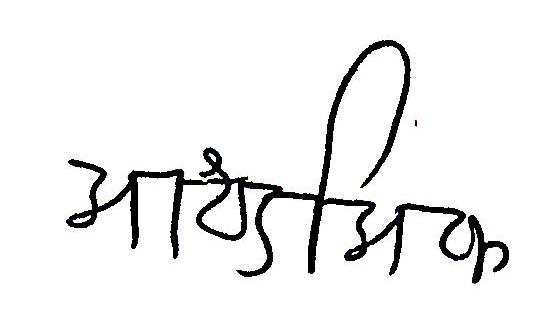 माध्यमिक